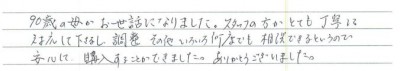 90歳の母がお世話になりました。スタッフの方がとても丁寧に
対応して下さるし、調整その他いろいろ何度でも相談できるというので
安心して、購入することができました。ありがとうございました。